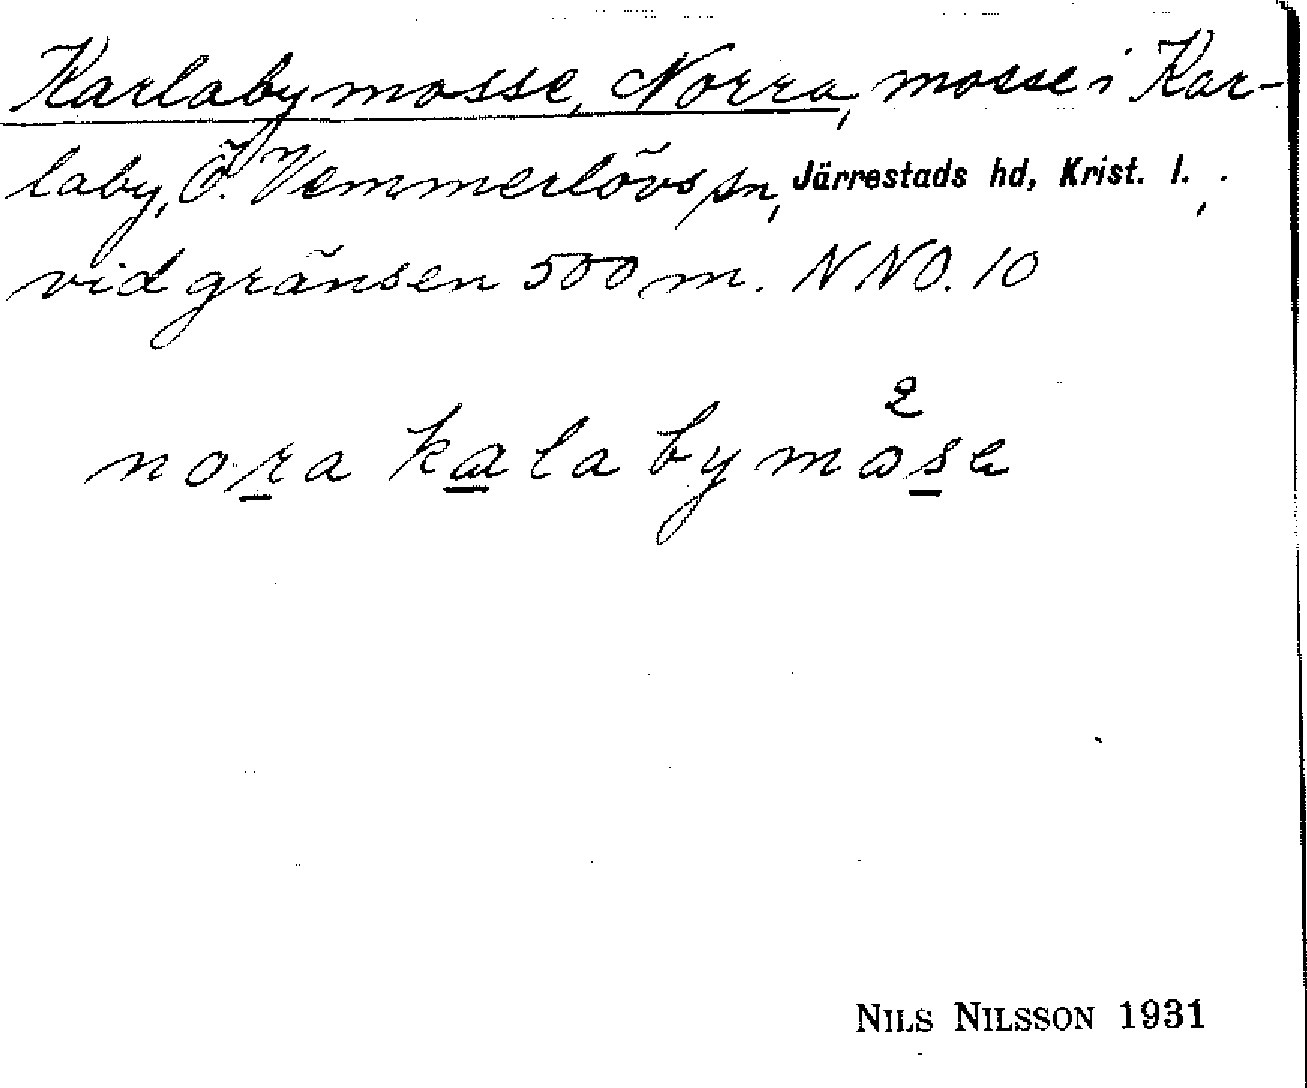 Karlabymosse, Norra, mosse i Kar-
laby, Ö. Vemmerlövs sn, Järrestads hd, Krist. l.,
vid gränsen 500 m. NNO. 10
2
nora kalabymosa
NILS NILSSON 1931